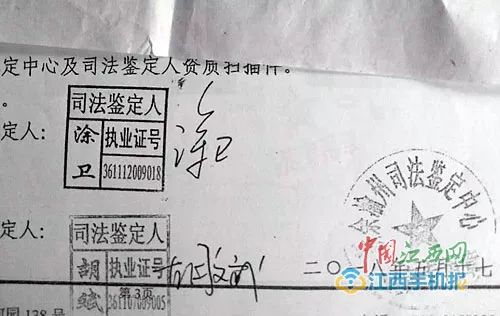 定中心及司法鉴定人资质扫描件。
。
定人：
司法鉴定人
涂卫
执业证号
361112009018
涂卫
渝州司法鉴定中心
定人：
司法鉴定人
胡斌
执业证号
361107009005
第3页
二〇一八年五月十七
中国江西网
江西手机报
园138号